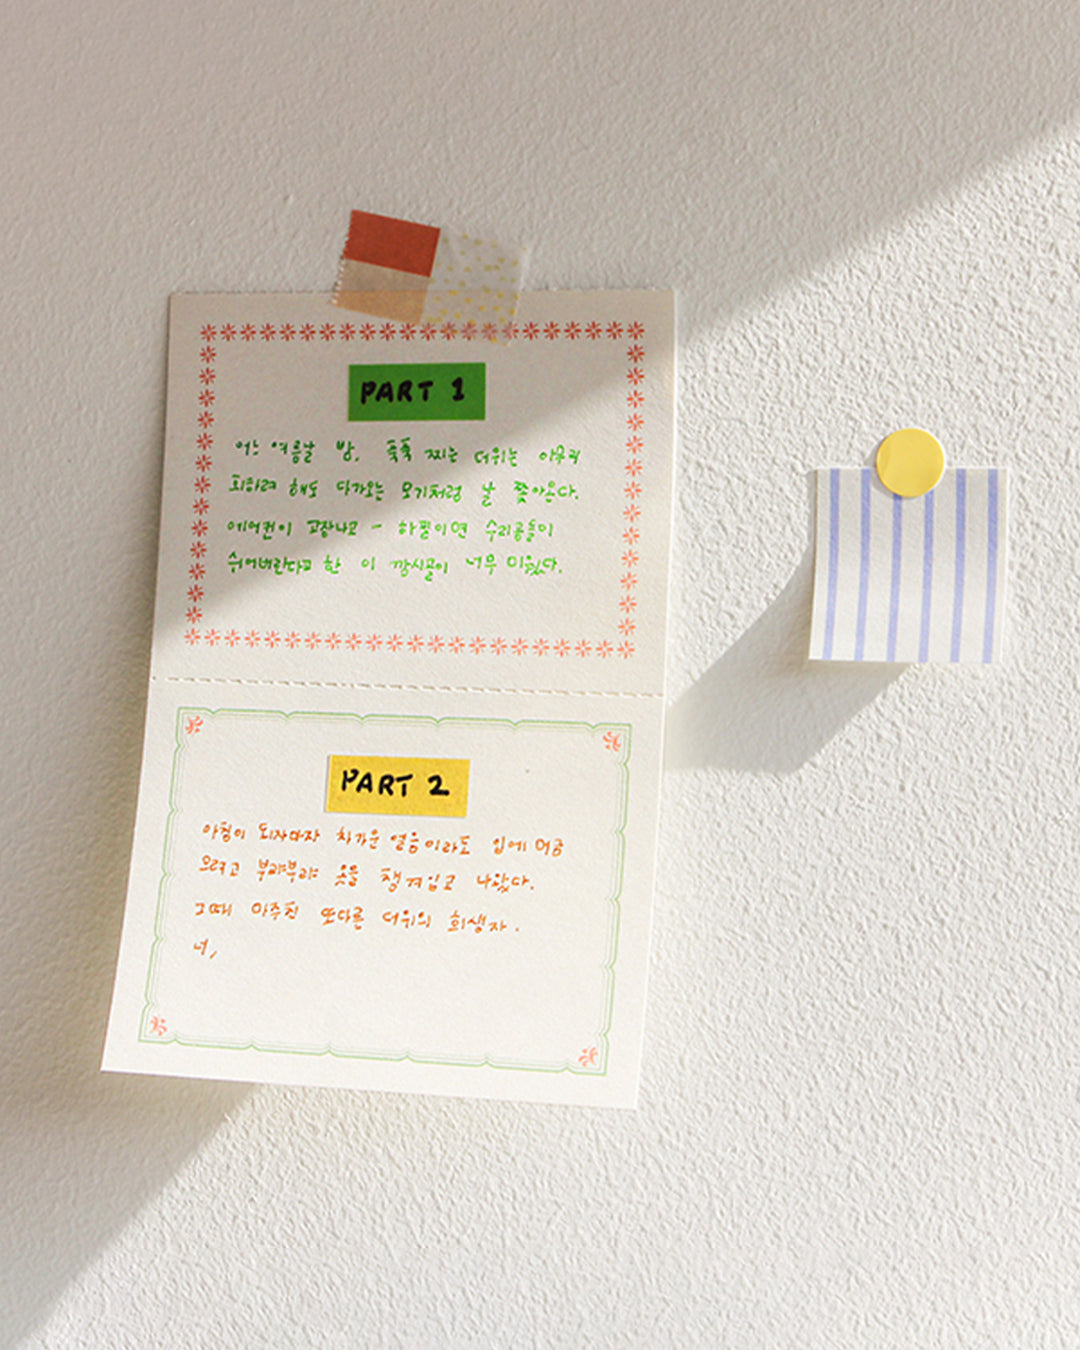 PART 1
어느 여름날 밤, 푹푹 찌는 더위는 아무리
피하려 해도 다가오는 모기처럼 날 쫓아온다.
에어컨이 고장나고 - 하필이면 수리공들이
쉬어버린다고 한 이 깡시골이 너무 미웠다.
PART 2
아침이 되자마자 차가운 얼음이라도 입에 머금
으려고 부랴부랴 옷을 챙겨입고 나왔다.
그때 마주친 또다른 더위의 희생자.
너,